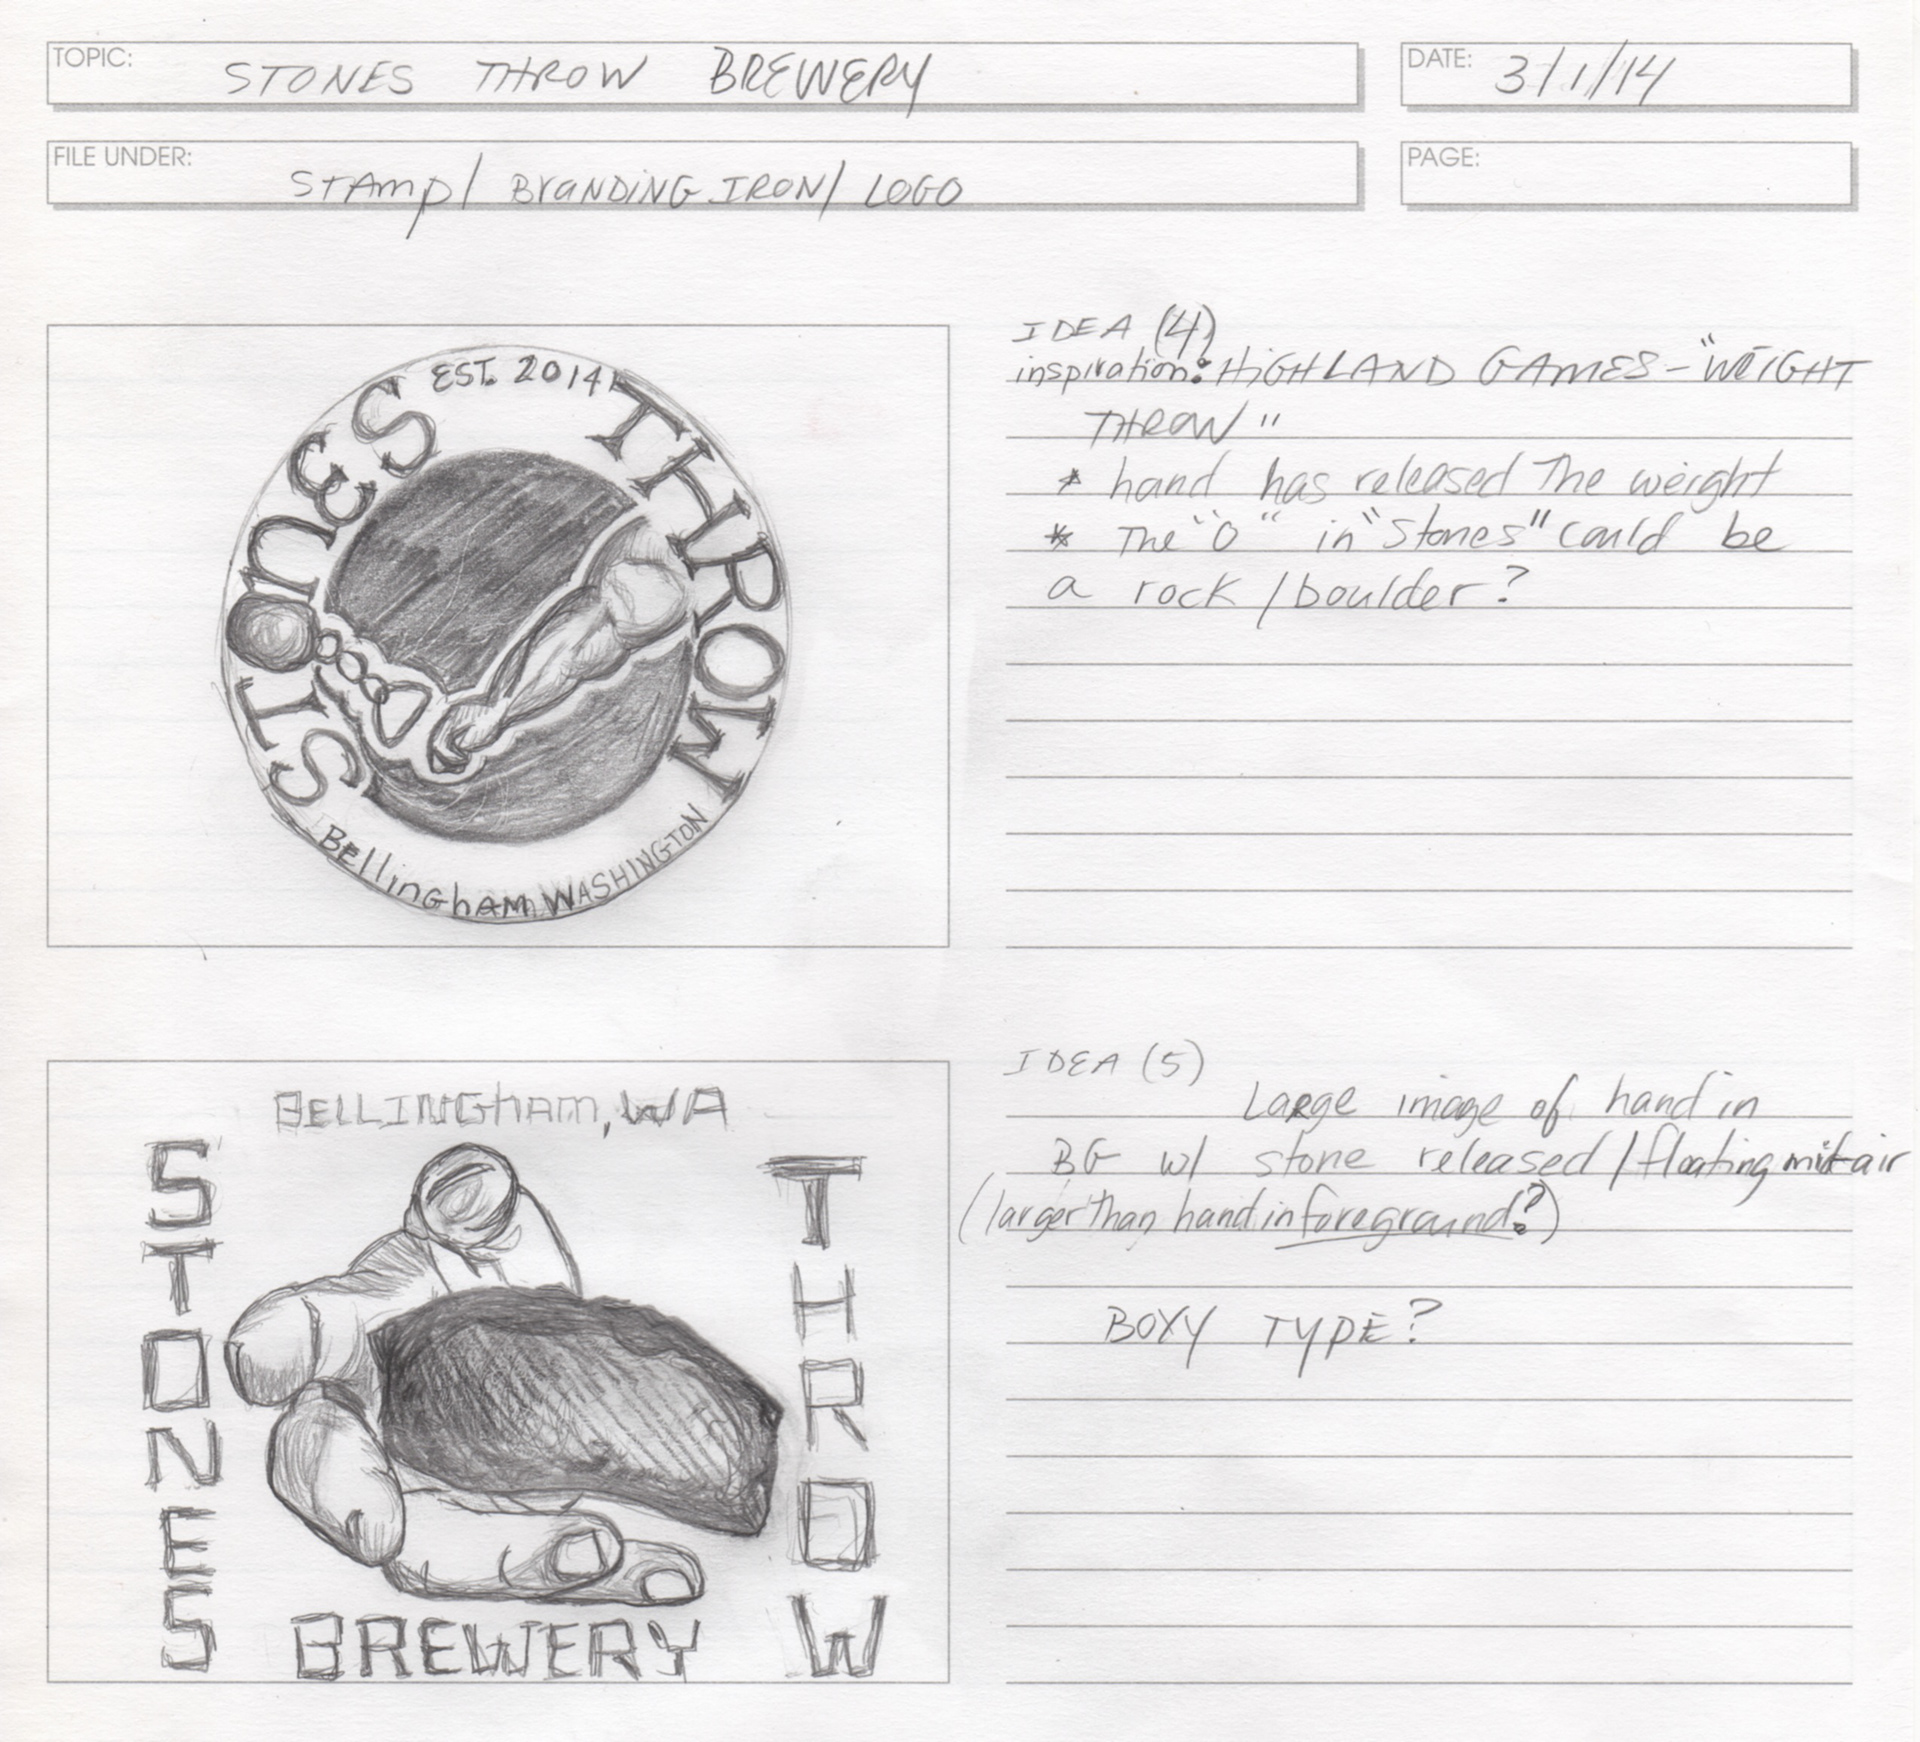 TOPIC: STONES THROW BREWERY
DATE: 3/1/14
FILE UNDER: STAMP/ BRANDING IRON/ LOGO
PAGE:
EST. 2014
STONES THROW
Bellingham, WASHINGTON
IDEA (4)
inspiration: HIGHLAND GAMES - "WEIGHT
THROW"
* hand has released The weight
* The "O" in "Stones" could be
a rock / boulder?
BELLINGHAM, WA
STONES
THROW
BREWERY
IDEA (5)
Large image of hand in
BG w/ stone released / floating mid-air
(larger than hand in foreground?)
BOXY TYPE?